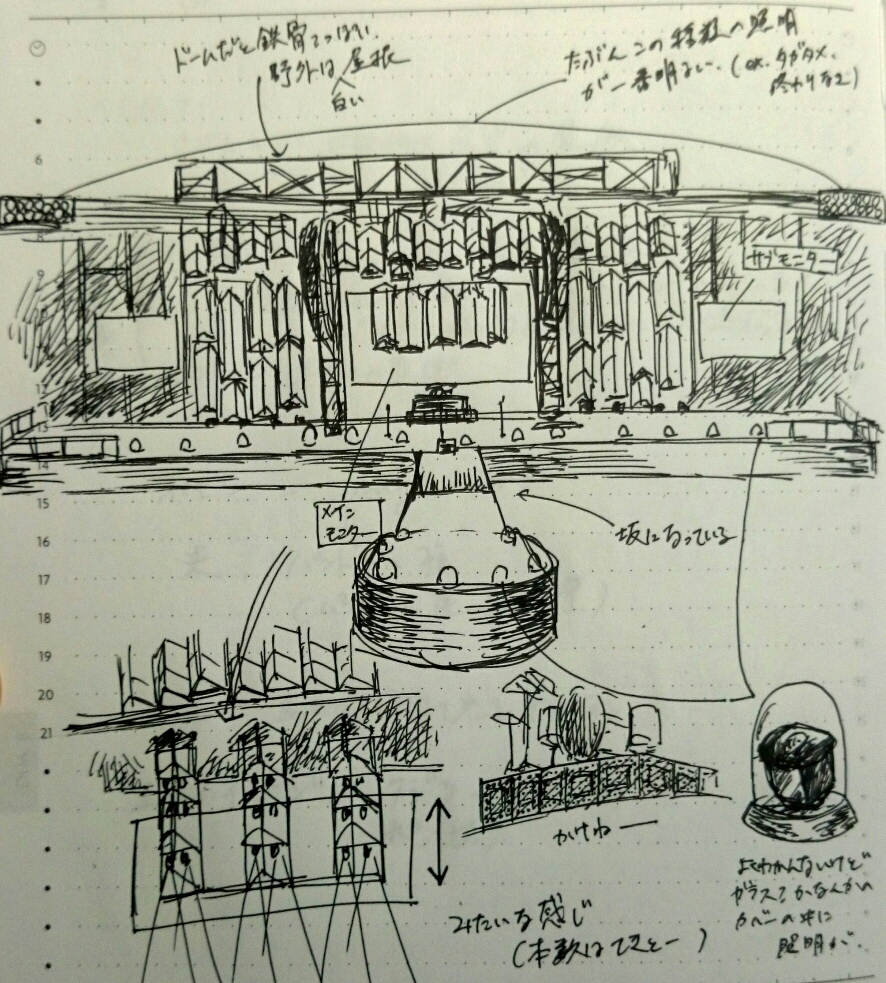 ドームだと鉄骨でっぽい
野外は屋根
白い
たぶんこの種類の照明
が一番明るい。(OK、タガタメ、
終わりなど)
6
8
9
サブモニター
13
14
15
メイン
モニター
坂になっている
16
17
18
19
20
21
かけねー
みたいな感じ
(本数はてきとー)
よくわかんないけど
ガラス?かなんかの
カバーの中に
照明が。